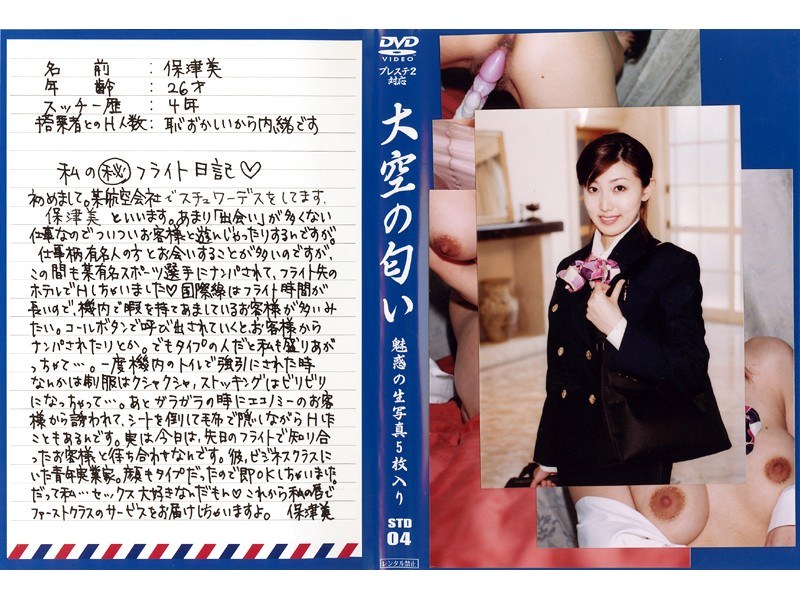 名 前 : 保津美
年 齢 : 26才
スッチー歴 : 4年
搭乗者とのH人数: 恥ずかしいから内緒です
私の㊙フライト日記♡
初めまして。某航空会社でスチュワーデスをしてます。
保津美といいます。あまり「出会い」が多くない
仕事なのでついついお客様と遊んじゃったりするんですが。
仕事柄有名人の方とお会いすることが多いのですが、
この間も某有名スポーツ選手にナンパされて、フライト先の
ホテルでHしちゃいました♡国際線はフライト時間が
長いので、機内で暇を持てあましているお客様が多いみ
たい。コールボタンで呼び出されていくと、お客様から
ナンパされたりとか。でもタイプの人だと私も盛りあが
っちゃて…。一度機内のトイレで強引にされた時
なんかは制服はクシャクシャ、ストッキングはビリビリ
になっちゃって…。あとガラガラの時にエコノミーのお客
様から誘われて、シートを倒して毛布で隠しながらHした
こともあるんです。実は今日は、先日のフライトで知り合
ったお客様と待ち合わせなんです。彼、ビジネスクラスに
いた青年実業家。顔もタイプだったので即OKしちゃいました。
だって私…セックス大好きなんだもん♡これから私の唇で
ファーストクラスのサービスをお届けしちゃいますよ。 保津美
DVD
VIDEO
プレステ2
対応
大空の匂い
魅惑の生写真5枚入り
STD
04
レンタル禁止